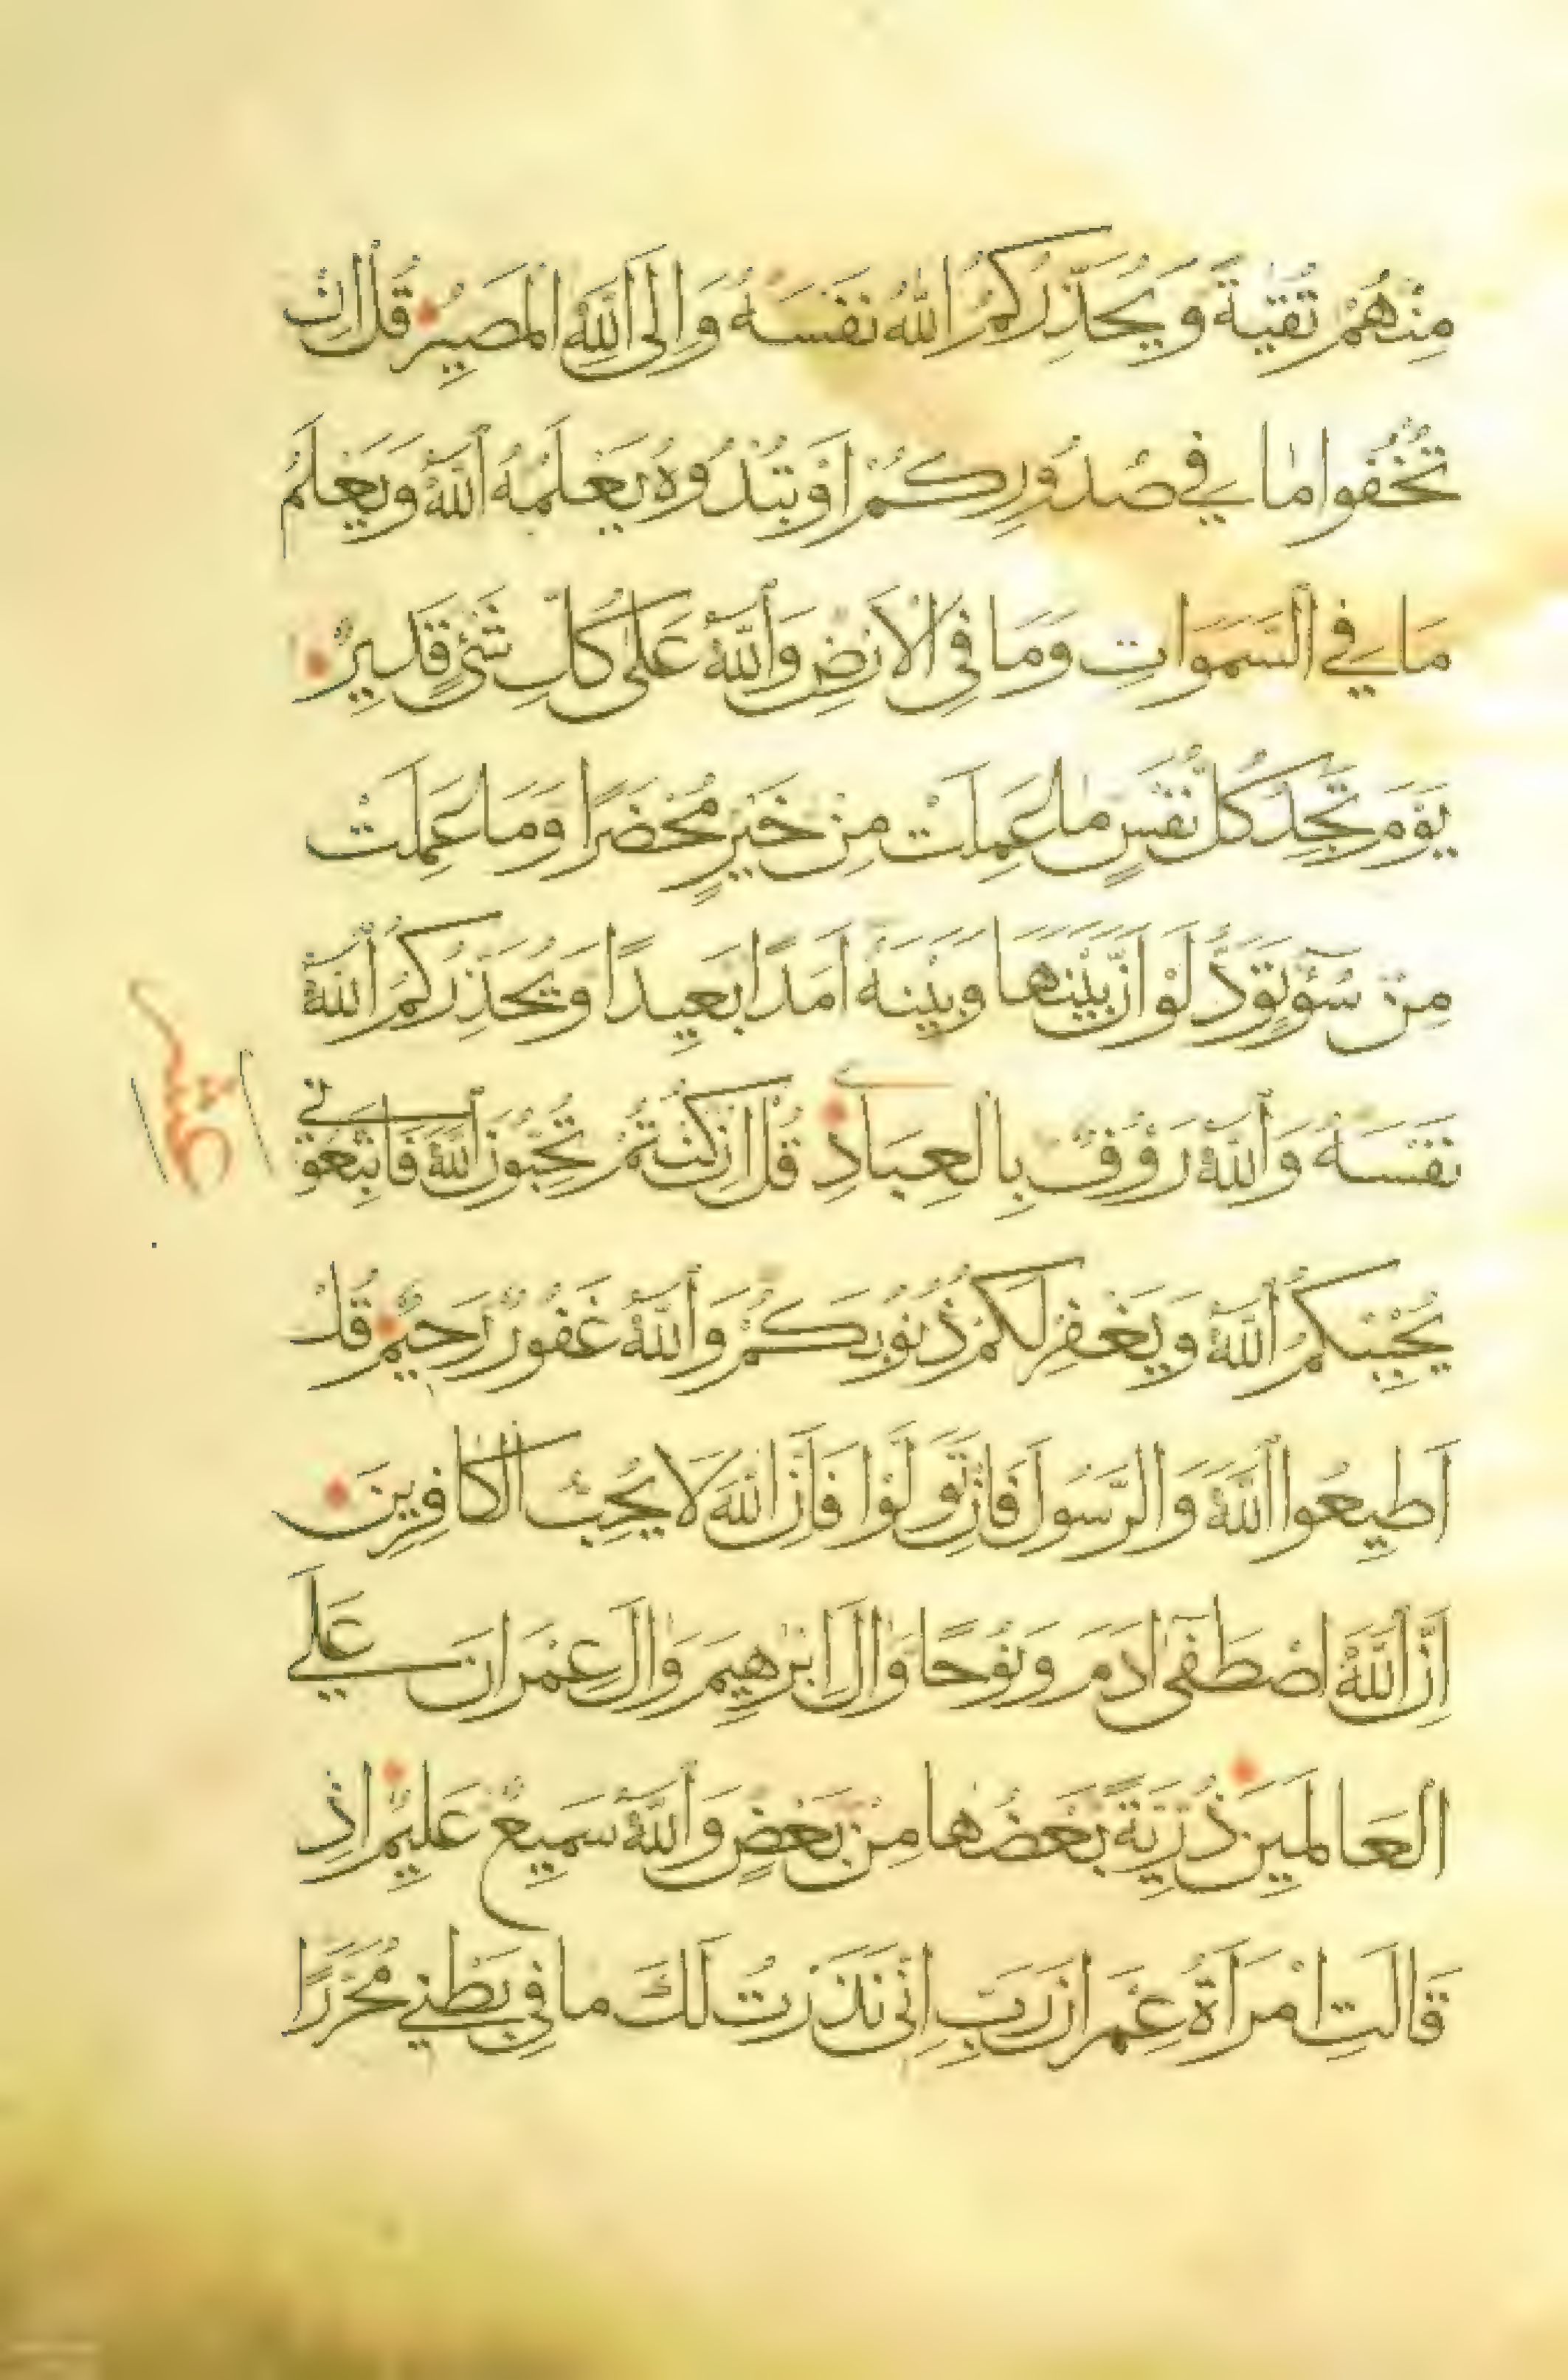 مِنْهُمْ تَقِيَّةً وَيُحَذِّرُكُمُ اللّٰهُ نَفْسَهُ وَاِلَى اللّٰهِ الْمَصِيرُ قُلْ اِنْ
تُخْفُوا مَا فِي صُدُورِكُمْ اَوْ تُبْدُوهُ يَعْلَمْهُ اللّٰهُ وَيَعْلَمُ
مَا فِي السَّمَوَاتِ وَمَا فِي الْاَرْضِ وَاللّٰهُ عَلٰى كُلِّ شَيْءٍ قَدِيرٌ
يَوْمَ تَجِدُ كُلُّ نَفْسٍ مَا عَمِلَتْ مِنْ خَيْرٍ مُحْضَرًا وَمَا عَمِلَتْ
مِنْ سُوٓءٍ تَوَدُّ لَوْ اَنَّ بَيْنَهَا وَبَيْنَهُ اَمَدًا بَعِيدًا وَيُحَذِّرُكُمُ اللّٰهُ
نَفْسَهُ وَاللّٰهُ رَؤُفٌ بِالْعِبَادِ قُلْ اِنْ كُنْتُمْ تُحِبُّونَ اللّٰهَ فَاتَّبِعُونِي
يُحْبِبْكُمُ اللّٰهُ وَيَغْفِرْ لَكُمْ ذُنُوبَكُمْ وَاللّٰهُ غَفُورٌ رَحِيمٌ قُلْ
اَطِيعُوا اللّٰهَ وَالرَّسُولَ فَاِنْ تَوَلَّوْا فَاِنَّ اللّٰهَ لَا يُحِبُّ الْكَافِرِينَ
اِنَّ اللّٰهَ اصْطَفٰى اٰدَمَ وَنُوحًا وَاٰلَ اِبْرٰهِيمَ وَاٰلَ عِمْرَانَ عَلَى
الْعَالَمِينَ ذُرِّيَّةً بَعْضُهَا مِنْ بَعْضٍ وَاللّٰهُ سَمِيعٌ عَلِيمٌ اِذْ
قَالَتِ امْرَاَةُ عِمْرَانَ رَبِّ اِنِّي نَذَرْتُ لَكَ مَا فِي بَطْنِي مُحَرَّرًا